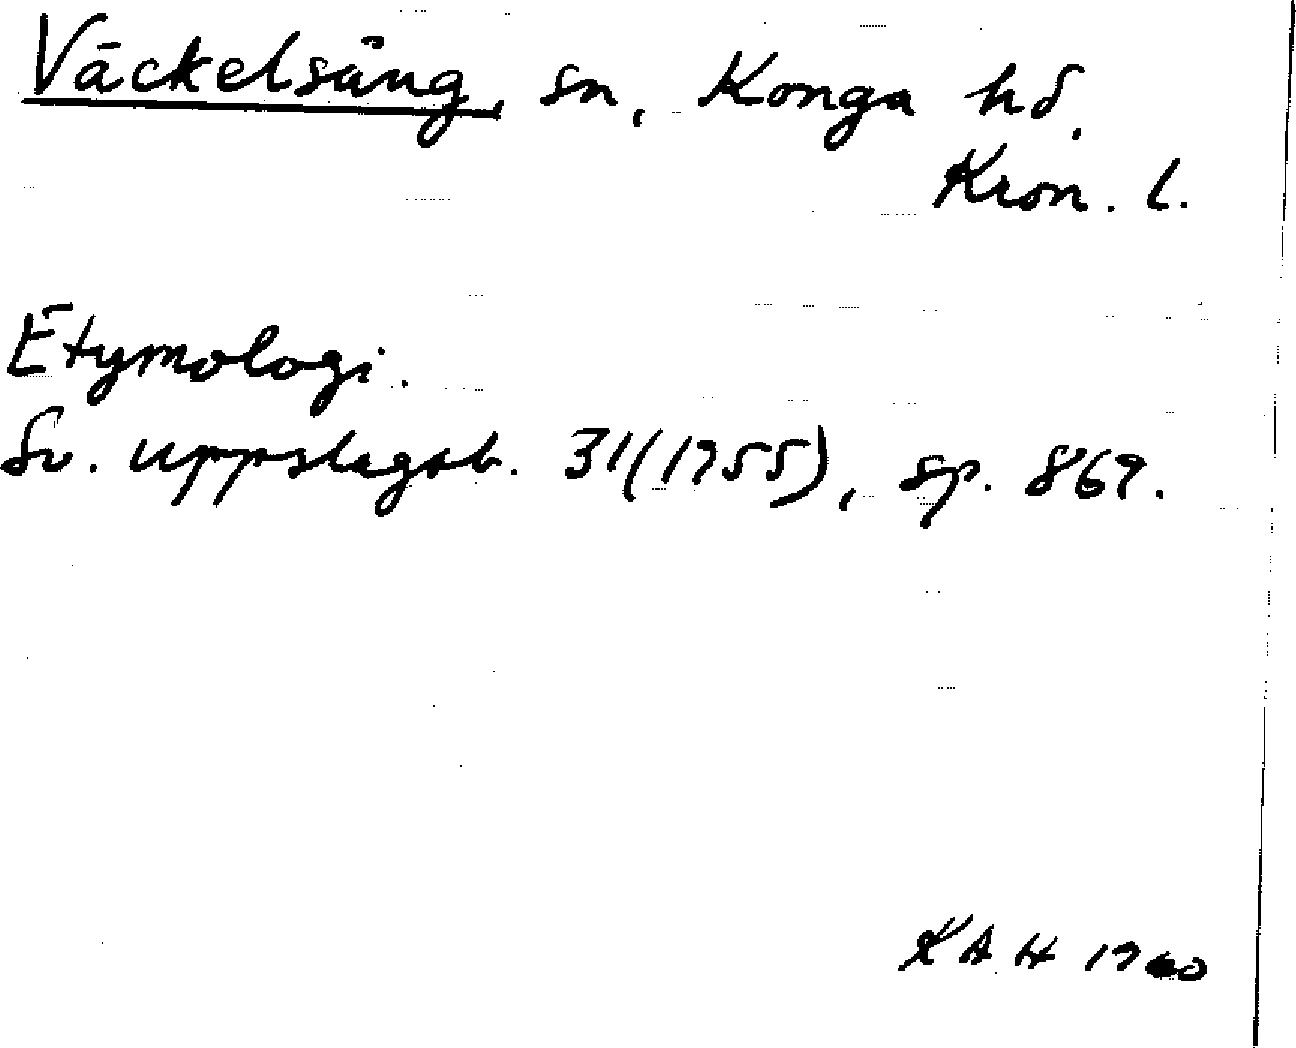 Väckelsång, sn, Konga hd.
Kron. l.
Etymologi.
Sv. uppslagsb. 31(1955), sp. 869.
KAH 1960